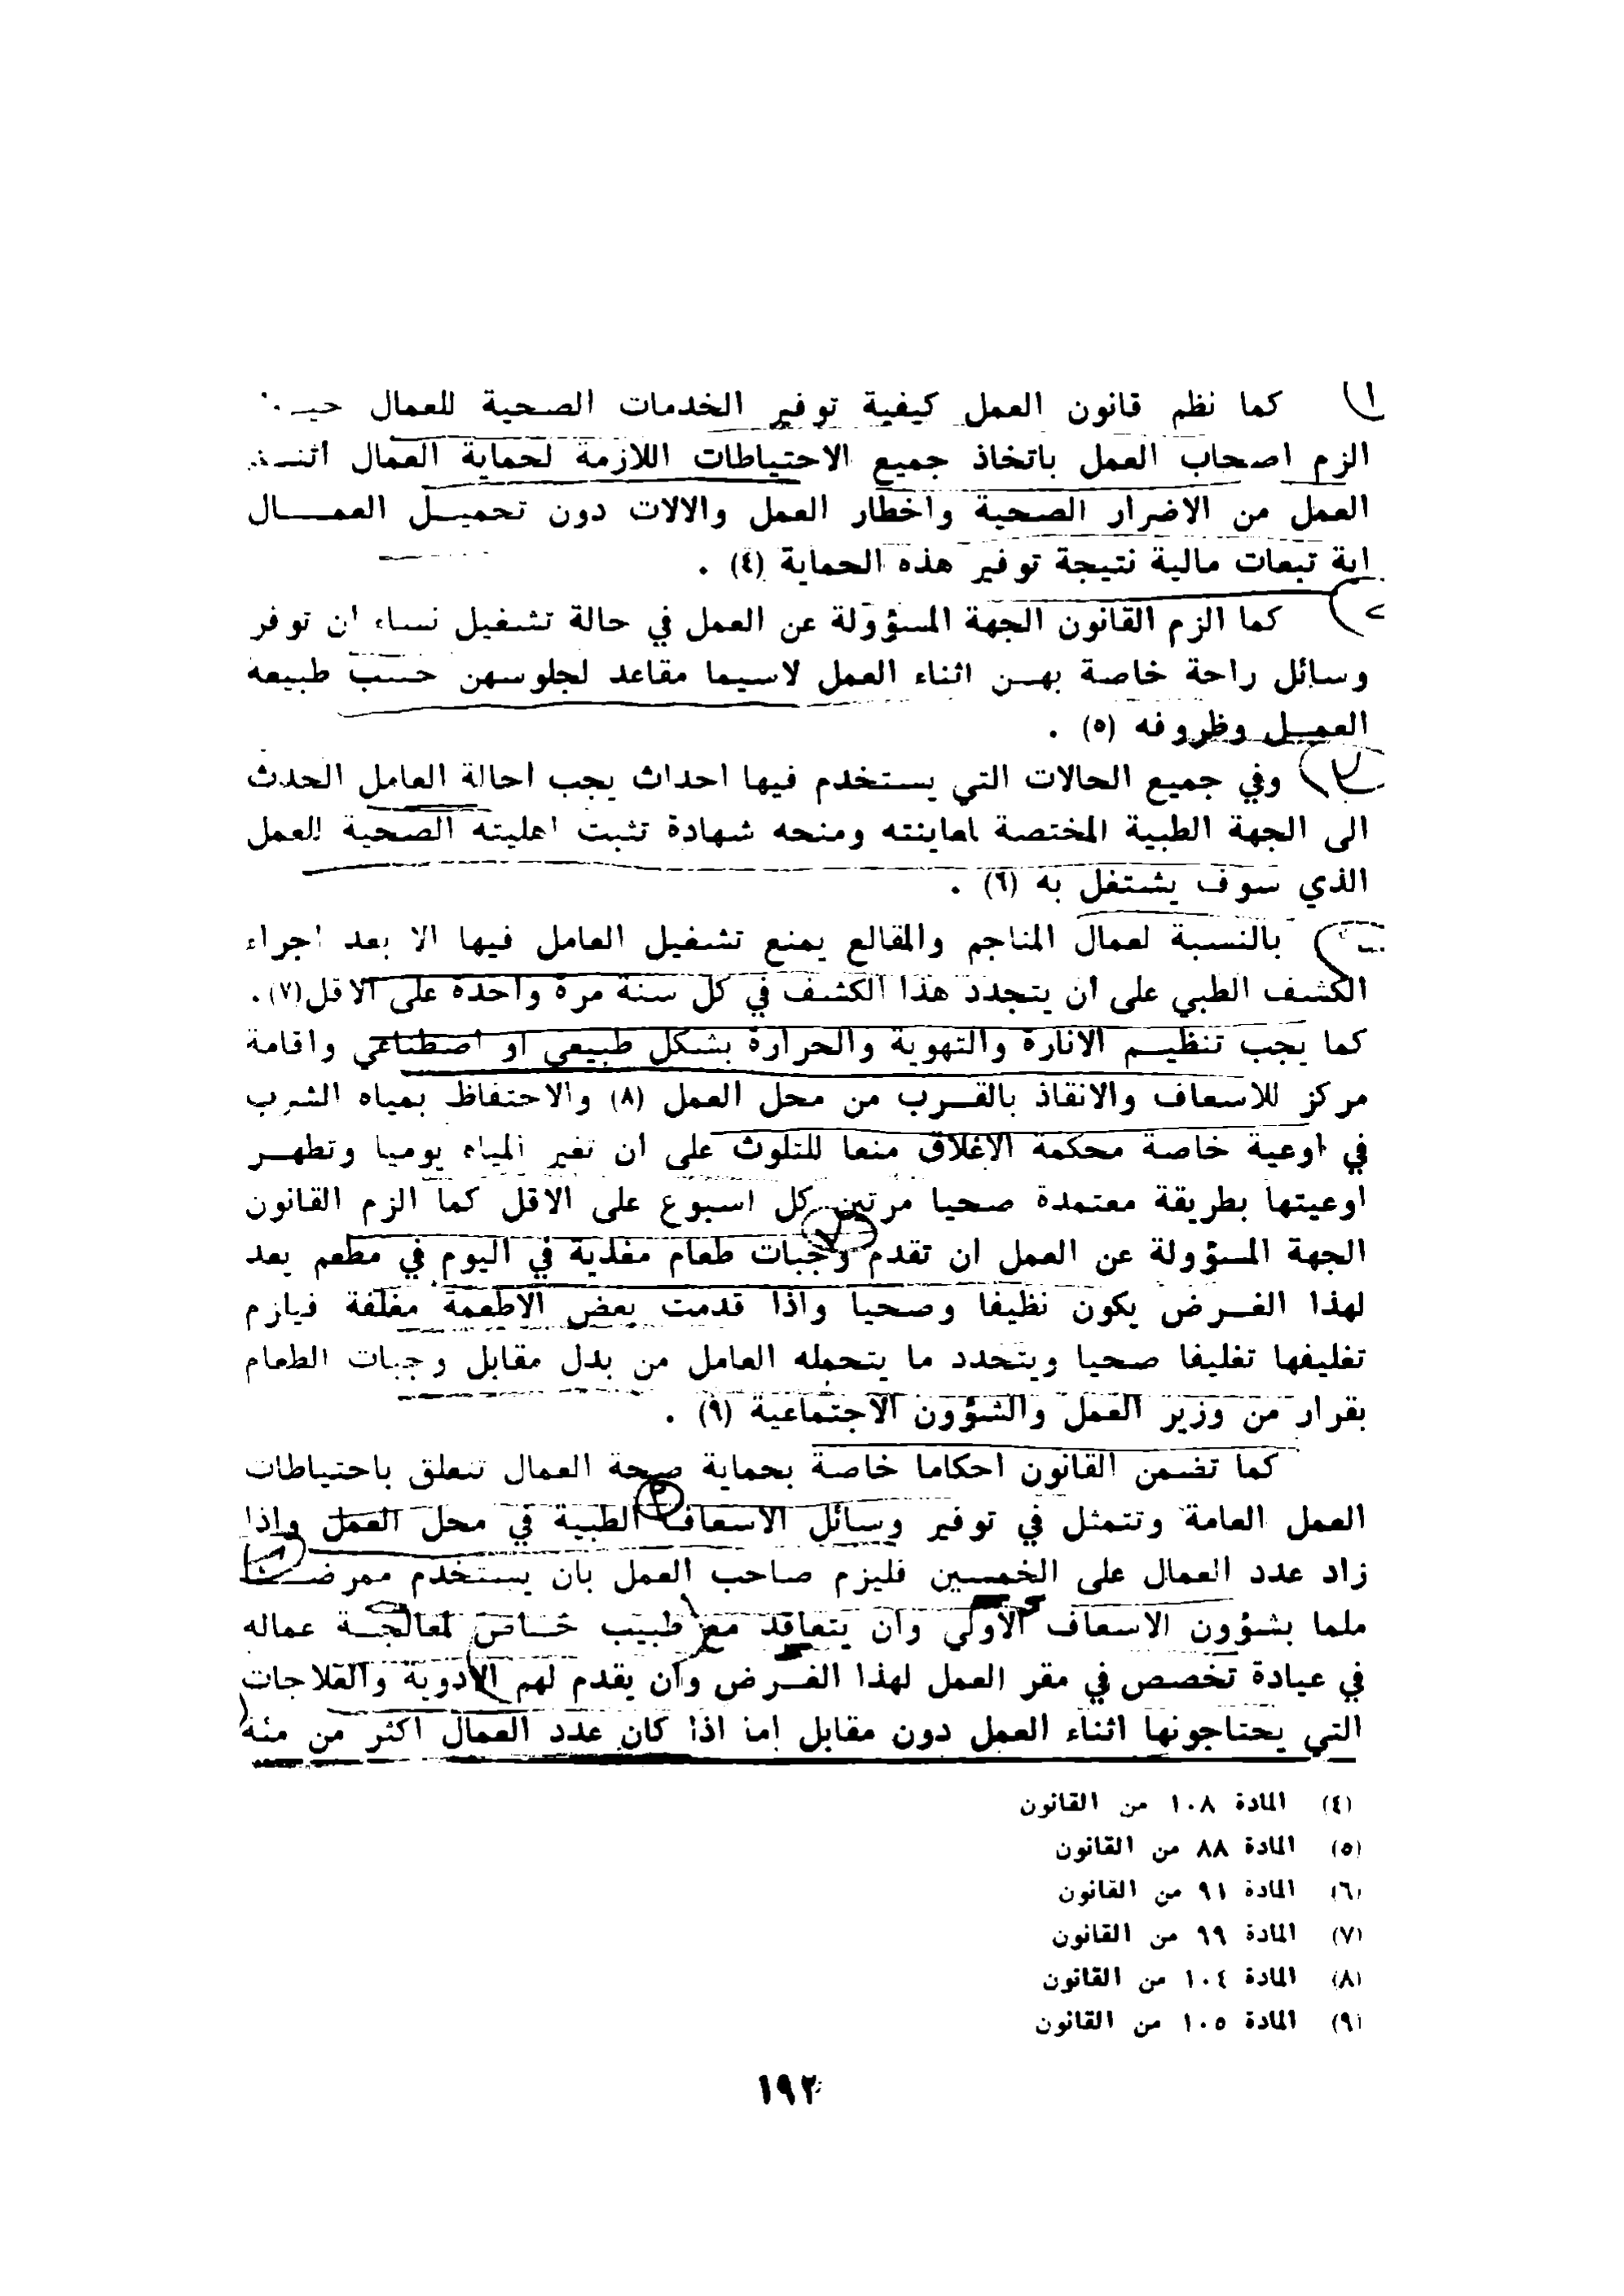 كما نظم قانون العمل كيفية توفير الخدمات الصحية للعمال
الزم اصحاب العمل باتخاذ جميع الاحتياطات اللازمة لحماية العمال
العمل من الاضرار الصحية واخطار العمل والالات دون تحميل العمال
اية تبعات مالية نتيجة توفير هذه الحماية (٤) .
كما الزم القانون الجهة المسؤولة عن العمل في حالة تشغيل نساء ان توفر
وسائل راحة خاصة بهن اثناء العمل لاسيما مقاعد لجلوسهن حسب طبيعه
العمل وظروفه (٥) .
وفي جميع الحالات التي يستخدم فيها احداث يجب احالة العامل الحدث
الى الجهة الطبية المختصة لمعاينته ومنحه شهادة تثبت اهليته الصحية للعمل
الذي سوف يشتغل به (٦) .
بالنسبة لعمال المناجم والمقالع يمنع تشغيل العامل فيها الا بعد اجراء
الكشف الطبي على ان يتجدد هذا الكشف في كل سنة مرة واحدة على الاقل(٧).
كما يجب تنظيم الانارة والتهوية والحرارة بشكل طبيعي او اصطناعي واقامة
مركز للاسعاف والانقاذ بالقرب من محل العمل (٨) والاحتفاظ بمياه الشرب
في اوعية خاصة محكمة الاغلاق منعا للتلوث على ان تغير المياه يوميا وتطهر
اوعيتها بطريقة معتمدة صحيا مرتين كل اسبوع على الاقل كما الزم القانون
الجهة المسؤولة عن العمل ان تقدم وجبات طعام مغذية في اليوم في مطعم يعد
لهذا الغرض يكون نظيفا وصحيا واذا قدمت بعض الاطعمة مغلفة فيلزم
تغليفها تغليفا صحيا ويتحدد ما يتحمله العامل من بدل مقابل وجبات الطعام
بقرار من وزير العمل والشؤون الاجتماعية (٩) .
كما تضمن القانون احكاما خاصة بحماية صحة العمال تتعلق باحتياطات
العمل العامة وتتمثل في توفير وسائل الاسعاف الطبية في محل العمل واذا
زاد عدد العمال على الخمسين فليزم صاحب العمل بان يستخدم ممرضا
ملما بشؤون الاسعاف الاولي وان يتعاقد مع طبيب خاص لمعالجة عماله
في عيادة تخصص في مقر العمل لهذا الغرض وان يقدم لهم الادوية والعلاجات
التي يحتاجونها اثناء العمل دون مقابل اما اذا كان عدد العمال اكثر من مئة
(٤) المادة ١٠٨ من القانون
(٥) المادة ٨٨ من القانون
(٦) المادة ٩١ من القانون
(٧) المادة ٩٩ من القانون
(٨) المادة ١٠٤ من القانون
(٩) المادة ١٠٥ من القانون
١٩٢